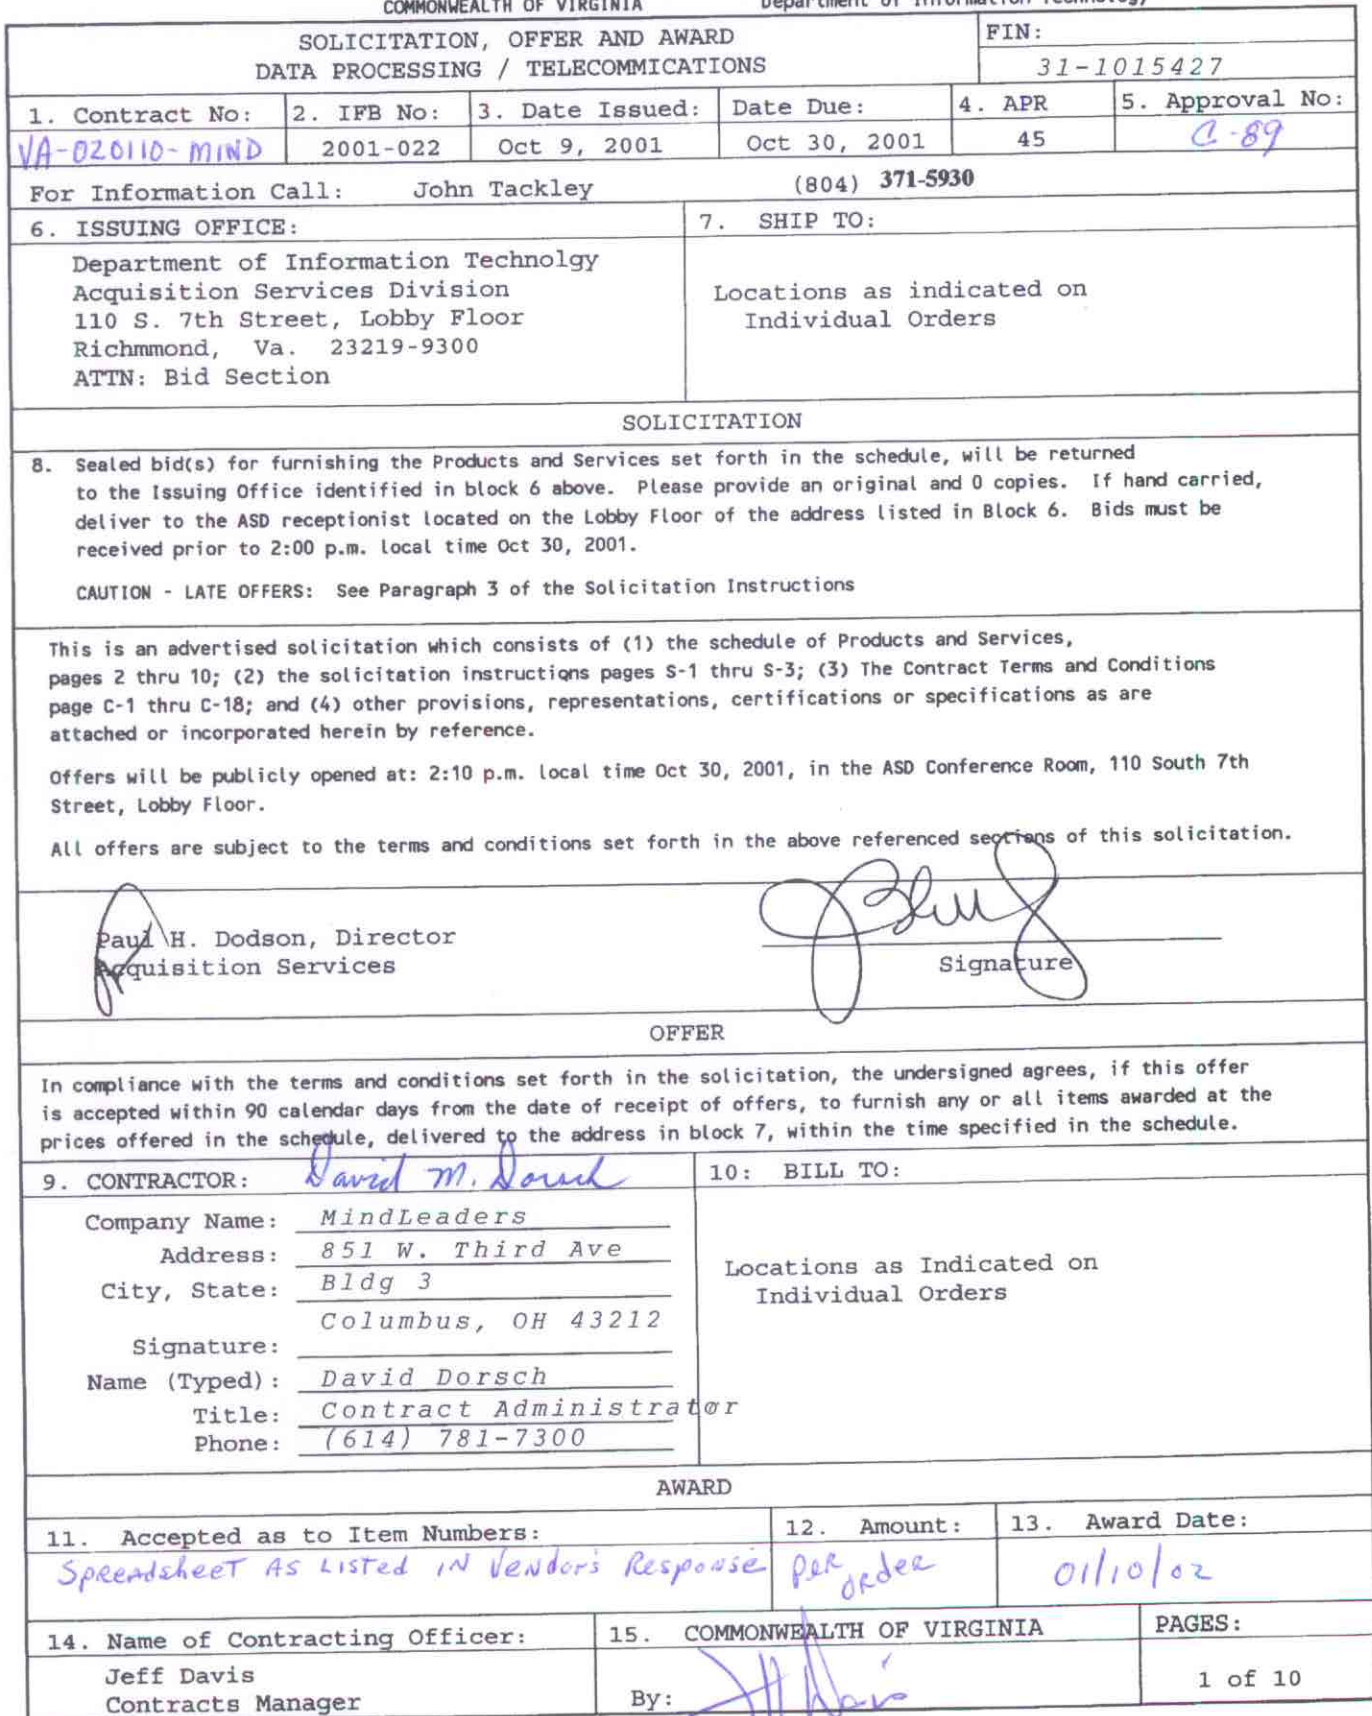 COMMONWEALTH OF VIRGINIA Department of Information Technology
SOLICITATION, OFFER AND AWARD
DATA PROCESSING / TELECOMMICATIONS
FIN:
31-1015427
1. Contract No: 2. IFB No: 3. Date Issued: Date Due: 4. APR 5. Approval No:
VA-020110-MIND 2001-022 Oct 9, 2001 Oct 30, 2001 45 C-89
For Information Call: John Tackley (804) 371-5930
6. ISSUING OFFICE:
Department of Information Technolgy
Acquisition Services Division
110 S. 7th Street, Lobby Floor
Richmmond, Va. 23219-9300
ATTN: Bid Section
7. SHIP TO:
Locations as indicated on
Individual Orders
SOLICITATION
8. Sealed bid(s) for furnishing the Products and Services set forth in the schedule, will be returned
to the Issuing Office identified in block 6 above. Please provide an original and 0 copies. If hand carried,
deliver to the ASD receptionist located on the Lobby Floor of the address listed in Block 6. Bids must be
received prior to 2:00 p.m. local time Oct 30, 2001.
CAUTION - LATE OFFERS: See Paragraph 3 of the Solicitation Instructions
This is an advertised solicitation which consists of (1) the schedule of Products and Services,
pages 2 thru 10; (2) the solicitation instructions pages S-1 thru S-3; (3) The Contract Terms and Conditions
page C-1 thru C-18; and (4) other provisions, representations, certifications or specifications as are
attached or incorporated herein by reference.
Offers will be publicly opened at: 2:10 p.m. local time Oct 30, 2001, in the ASD Conference Room, 110 South 7th
Street, Lobby Floor.
All offers are subject to the terms and conditions set forth in the above referenced sections of this solicitation.
Paul H. Dodson, Director
Acquisition Services
Signature
OFFER
In compliance with the terms and conditions set forth in the solicitation, the undersigned agrees, if this offer
is accepted within 90 calendar days from the date of receipt of offers, to furnish any or all items awarded at the
prices offered in the schedule, delivered to the address in block 7, within the time specified in the schedule.
9. CONTRACTOR: David M. Dorsch
Company Name: MindLeaders
Address: 851 W. Third Ave
City, State: Bldg 3
Columbus, OH 43212
Signature:
Name (Typed): David Dorsch
Title: Contract Administrator
Phone: (614) 781-7300
10: BILL TO:
Locations as Indicated on
Individual Orders
AWARD
11. Accepted as to Item Numbers: 12. Amount: 13. Award Date:
Spreadsheet As Listed IN Vendor's Response per order 01/10/02
14. Name of Contracting Officer:
Jeff Davis
Contracts Manager
15. COMMONWEALTH OF VIRGINIA
By:
PAGES:
1 of 10